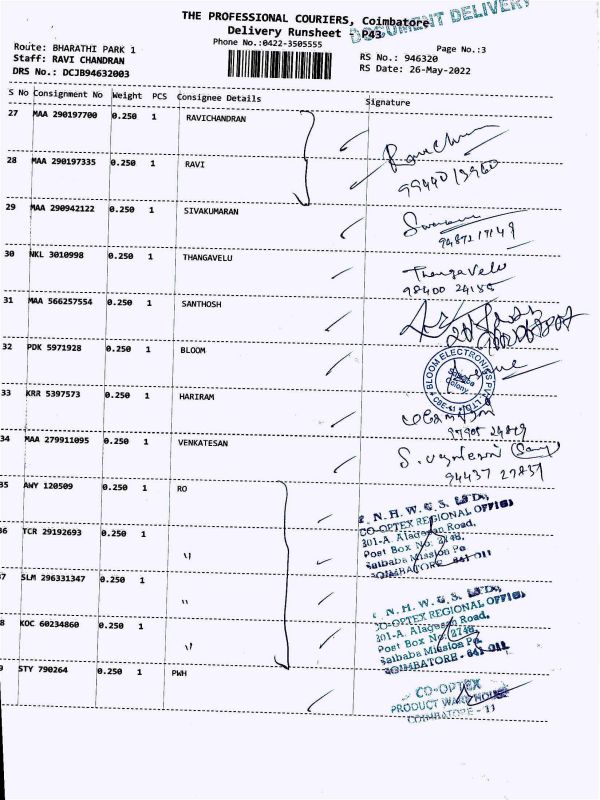 DOCUMENT DELIVERY
THE PROFESSIONAL COURIERS, Coimbatore
Delivery Runsheet - P43
Phone No.:0422-3505555
Page No.:3
Route: BHARATHI PARK 1
RS No.: 946320
Staff: RAVI CHANDRAN
RS Date: 26-May-2022
DRS No.: DCJB94632003
S No Consignment No Weight PCS Consignee Details Signature
27 MAA 290197700 0.250 1 RAVICHANDRAN
28 MAA 290197335 0.250 1 RAVI
99440 13960
29 MAA 290942122 0.250 1 SIVAKUMARAN
30 NKL 3010998 0.250 1 THANGAVELU
Thangavelu
98400 24156
31 MAA 566257554 0.250 1 SANTHOSH
32 PDK 5971928 0.250 1 BLOOM
BLOOM ELECTRONICS PVT. LTD.
Saibaba
Colony
CBE-11
33 KRR 5397573 0.250 1 HARIRAM
34 MAA 279911095 0.250 1 VENKATESAN
94437 27837
35 AWY 120509 0.250 1 RO
T. N. H. W. C. S. LTD.,
CO-OPTEX REGIONAL OFFICE
201-A. Alagesan Road,
Post Box No. 2748,
Saibaba Mission Po
COIMBATORE - 641 011
36 TCR 29192693 0.250 1 "
37 SLM 296331347 0.250 1 "
T. N. H. W. C. S. LTD.,
CO-OPTEX REGIONAL OFFICE
201-A. Alagesan Road,
Post Box No. 2748,
Saibaba Mission Po.
COIMBATORE - 641 011
38 KOC 60234860 0.250 1 "
39 STY 790264 0.250 1 PWH
CO-OPTEX
PRODUCT WARE HOUSE
COIMBATORE - 11